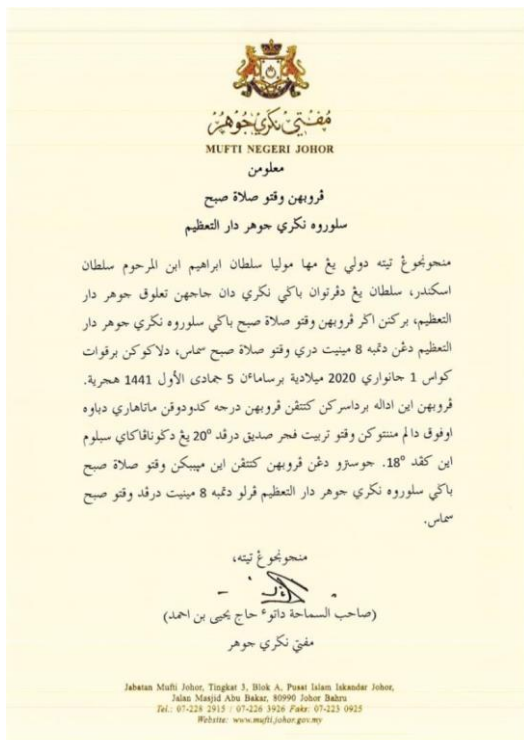 مفتي نڬري جوهر
MUFTI NEGERI JOHOR
معلومن
ڤروبهن وقتو صلاة صبح
سلوروه نڬري جوهر دار التعظيم
منجونجوڠ تيته دولي يڠ مها موليا سلطان ابراهيم ابن المرحوم سلطان
اسكندر، سلطان يڠ دڤرتوان باڬي نڬري دان جاجهن تعلوق جوهر دار
التعظيم، بركنن اڬر ڤروبهن وقتو صلاة صبح باڬي سلوروه نڬري جوهر دار
التعظيم دڠن دتمبه 8 مينيت دري وقتو صلاة صبح سماس، دلاكوكن برقوات
كواس 1 جانواري 2020 ميلادية برسامأن 5 جمادى الأول 1441 هجرية.
ڤروبهن اين اداله برداسركن كتتڤن ڤروبهن درجه كدودوقن ماتاهاري دباوه
اوفوق دالم مننتوكن وقتو تربيت فجر صديق درڤد 20° يڠ دڬوناڤاكاي سبلوم
اين كڤد 18°. جوسترو دڠن ڤروبهن كتتڤن اين مڽببكن وقتو صلاة صبح
باڬي سلوروه نڬري جوهر دار التعظيم ڤرلو دتمبه 8 مينيت درڤد وقتو صبح
سماس.
منجونجوڠ تيته،
(صاحب السماحة داتوء حاج يحيى بن احمد)
مفتي نڬري جوهر
Jabatan Mufti Johor, Tingkat 3, Blok A, Pusat Islam Iskandar Johor,
Jalan Masjid Abu Bakar, 80990 Johor Bahru
Tel.: 07-228 2915 / 07-226 3926 Faks: 07-223 0925
Website: www.mufti.johor.gov.my